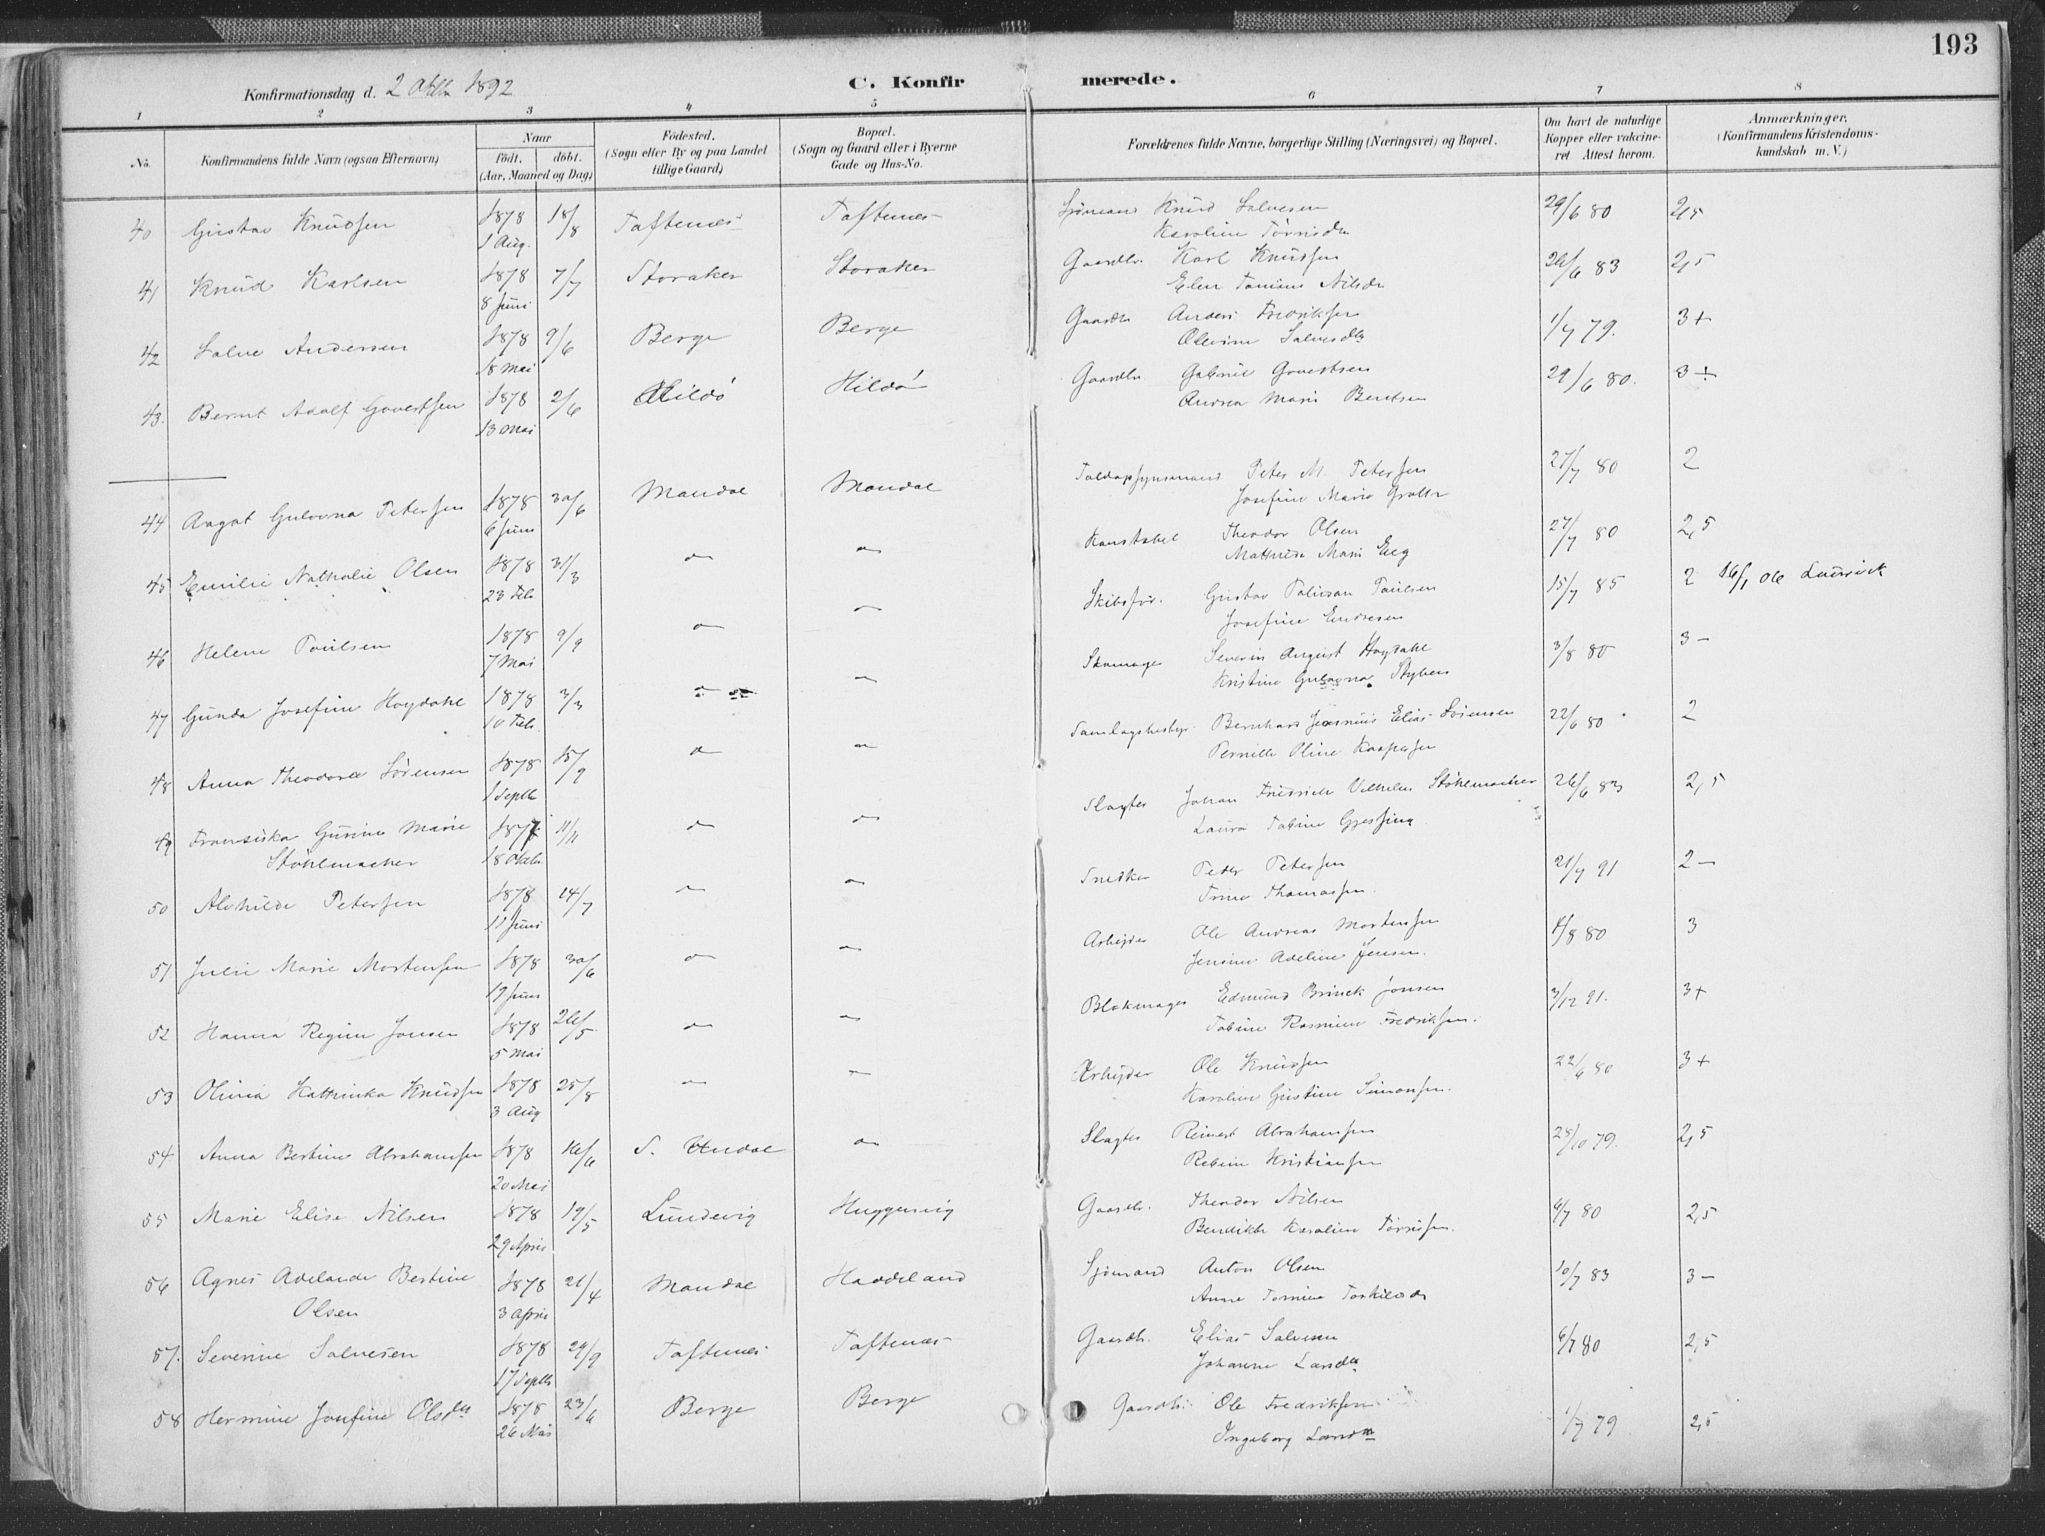 193
Konfirmationsdag d. 2 Oktbr 1892
C. Konfirmerede.
1 2 3 4 5 6 7 8
No. Konfirmandens fulde Navn (ogsaa Efternavn) Naar født. døbt. (Aar, Maaned og Dag) Fødested. (Sogn eller By og paa Landet tillige Gaard) Bopæl. (Sogn og Gaard eller i Byerne Gade og Hus-No. Forældrenes fulde Navne, borgerlige Stilling (Næringsvei) og Bopæl. Om havt de naturlige Kopper eller vakcineret Attest herom. Anmærkninger. (Konfirmandens Kristendomskundskab m. V.)
40 Gustav Knudsen 1878 18/8 Taftenes Taftenes Sjømand Knud Salvesen 29/6 80 2,5
1 Aug. Karoline Tørrisdtr
41 Knud Karlsen 1878 7/7 Storaker Storaker Gaardbr. Karl Knudsen 26/6 83 2,5
8 Juni Elen Tomine Nilsdr
42 Salve Andersen 1878 9/6 Berge Berge Gaardbr Anders Fredriksen 1/7 79. 3+
18 Mai Olevine Salvesdtr
43. Bernt Adolf Govertsen 1878 2/6 Hildø Hildø Gaardbr Gabriel Govertsen 29/6 80. 3÷
13 Mai Andrea Marie Bentsen
44 Aagot Gulovna Petersen 1878 30/6 Mandal Mandal Toldopsynsmand Peter M. Petersen 27/7 80 2
6 Juni Josefine Marie
45 Emilie Nathalie Olsen 1878 31/3 " " Konstabel Theodor Olsen 27/7 80 2,5
23 Feb Mathilde Marie Eeg
46 Helene Poulsen 1878 9/9 " " Skibsfør. Gustav Poulsen 15/7 85 2 16/1 Ole Lausvick
7 Mai Josefine Endresen
47 Gunda Josefine Høydahl 1878 3/3 " " Skomager Severin August Høydahl 3/8 80 3–
10 Feb. Kristine Gulovna Styhen
48 Anna Theodora Sørensen 1878 15/9 " " Samlagsbestyr. Bernhard Jeremias Elias Sørensen 22/6 80 2
1 Septbr Pernille Oline Kaspersen
49 Fransiska Gurine Marie 1877 11/11 " " Slagter Johan Fredrich Vilhelm Støhlmacher 26/6 83 2,5
Støhlmacher 18 Oktbr Laura Tobine Gjessing
50 Alvhilde Petersen 1878 14/7 " " Snedker Peder Petersen 21/7 91 2–
11 Juni Trine Thomassen.
51 Julie Marie Mortensen 1878 30/6 " " Arbeider Ole Andreas Mortensen 11/8 80 3
19 Juni Jensine Adeline Jensen.
52 Hanna Regine Jonsen 1878 26/5 " " Blokmager Edmund Brinck Jonsen 3/12 91. 3+
5 Mai Tobine Rasmine Fredriksen.
53 Olivia Kathinka Knudsen 1878 25/8 " " Arbeider Ole Knudsen 22/6 80 3+
3 Aug Karoline Gustine Simonsen.
54 Anna Bertine Abrahamsen 1878 16/6 S. Undal " Slagter Reinert Abrahamsen 28/10 79. 2,5
20 Mai Rebine Kristiansen
55 Marie Elise Nilsen 1878 19/5 Lundevig Huggenvig Gaardbr. Theodor Nilsen 6/7 80 2,5
29 April Bendikte Karoline Tørrisen.
56 Agnes Adelaide Bertine 1878 21/4 Mandal Haddeland Sjømand Anton Olsen 10/7 83 3–
Olsen 3 April Anne Tomine Torkilsdr
57. Severine Salvesen 1878 29/9 Taftenes Taftenæs Gaardbr. Elias Salvesen 6/7 80 2,5
17 Septbr Johanne Larsdtr
58 Hermine Josefine Olsdtr 1878 23/6 Berge Berge Gaardbr. Ole Fredriksen 1/7 79 2,5
26 Mai Ingeborg Larsdtr